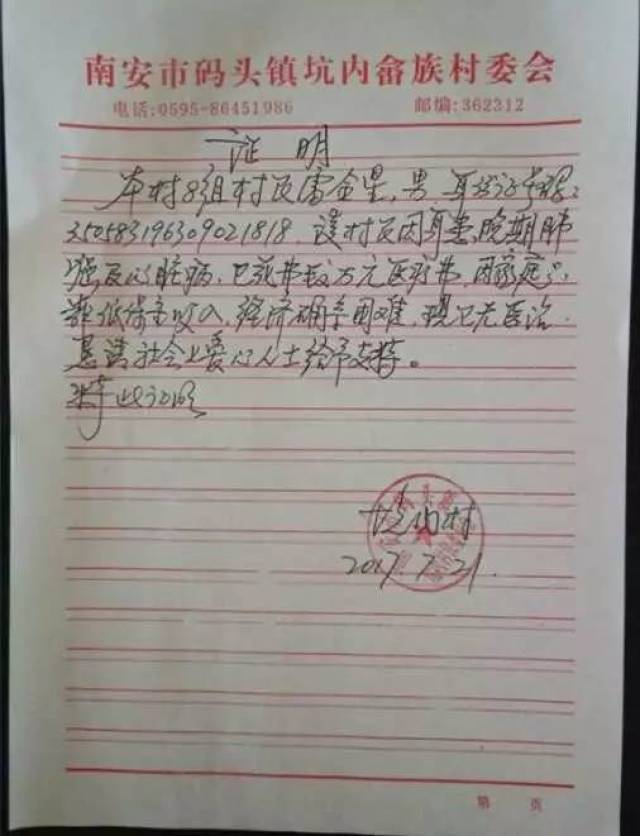 南安市码头镇坑内畲族村委会
电话:0595-86451986 邮编:362312
证明
本村8组村民雷金星,男,身份证号码:
350583196309021818,该村民因身患晚期肺
癌及心脏病,已花费数万元医疗费,因家庭只
靠低保金收入,经济确实困难,现已无医治,
恳请社会上爱心人士给予支持。
特此证明
坑内村
2017.7.21.
第 页